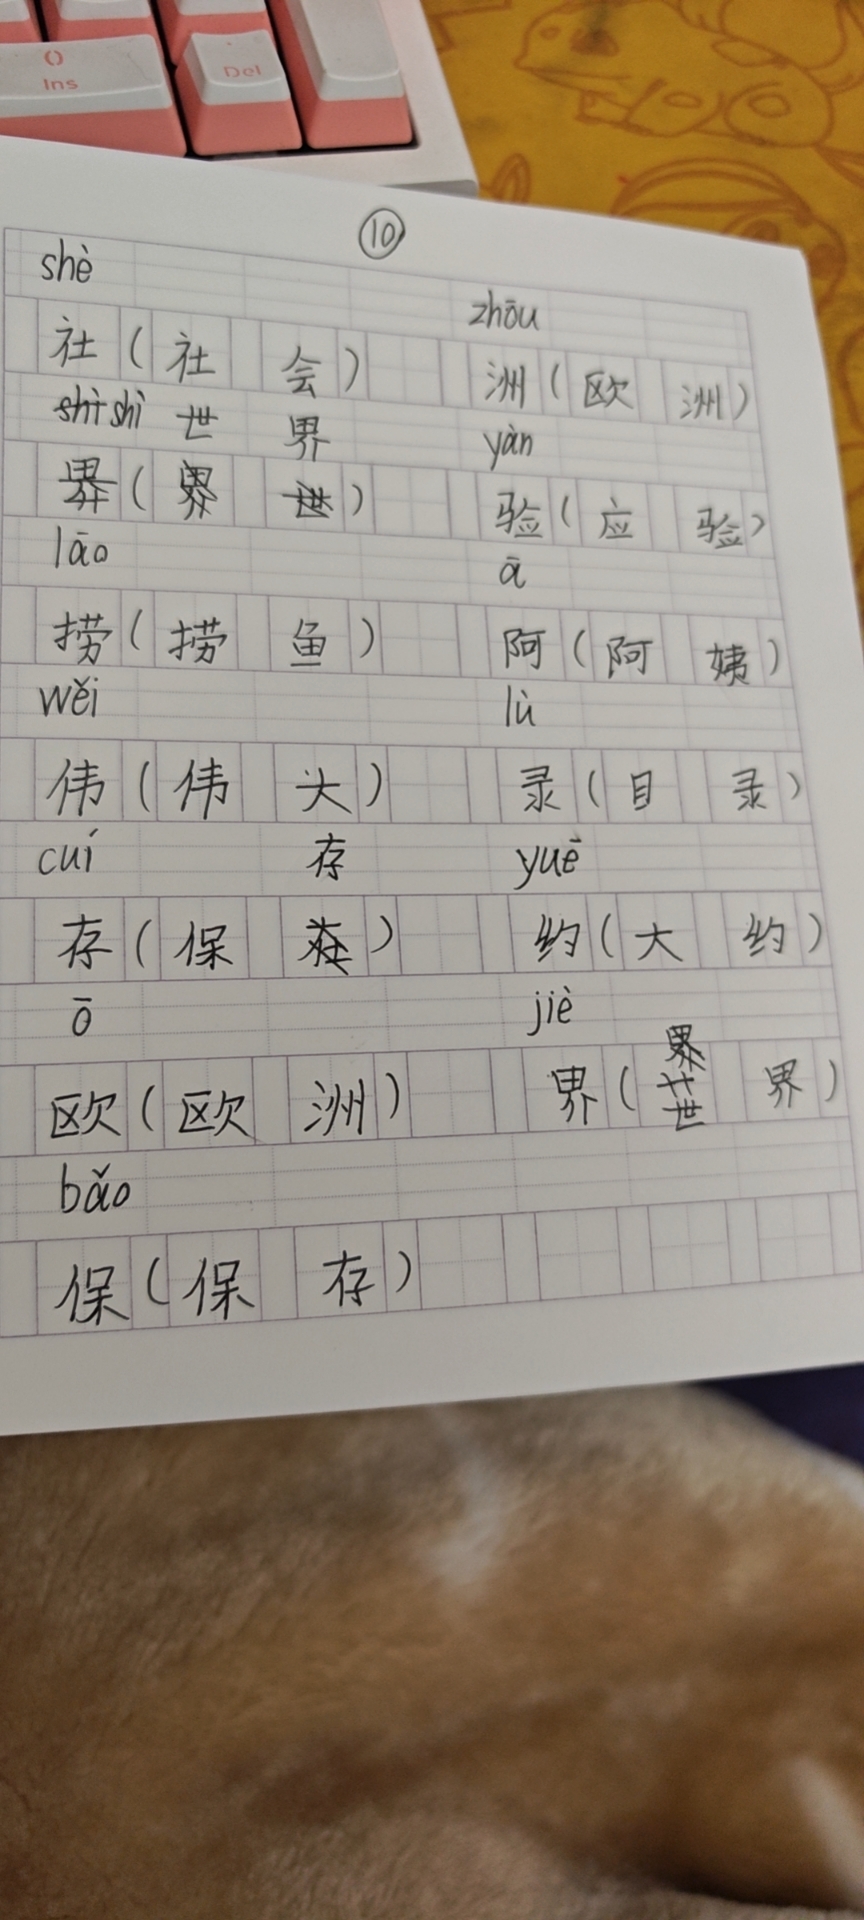 ()
Ins
Del
⑩
shè
zhōu
社(社会)
洲(欧洲)
shì shì 世界
yàn
界(界世)
验(应验)
lāo
ā
捞(捞鱼)
阿(阿姨)
wěi
lù
伟(伟大)
录(目录)
cuí 存
yuē
存(保存)
约(大约)
ō
jiè
欧(欧洲)
界
界(世界)
bǎo
保(保存)